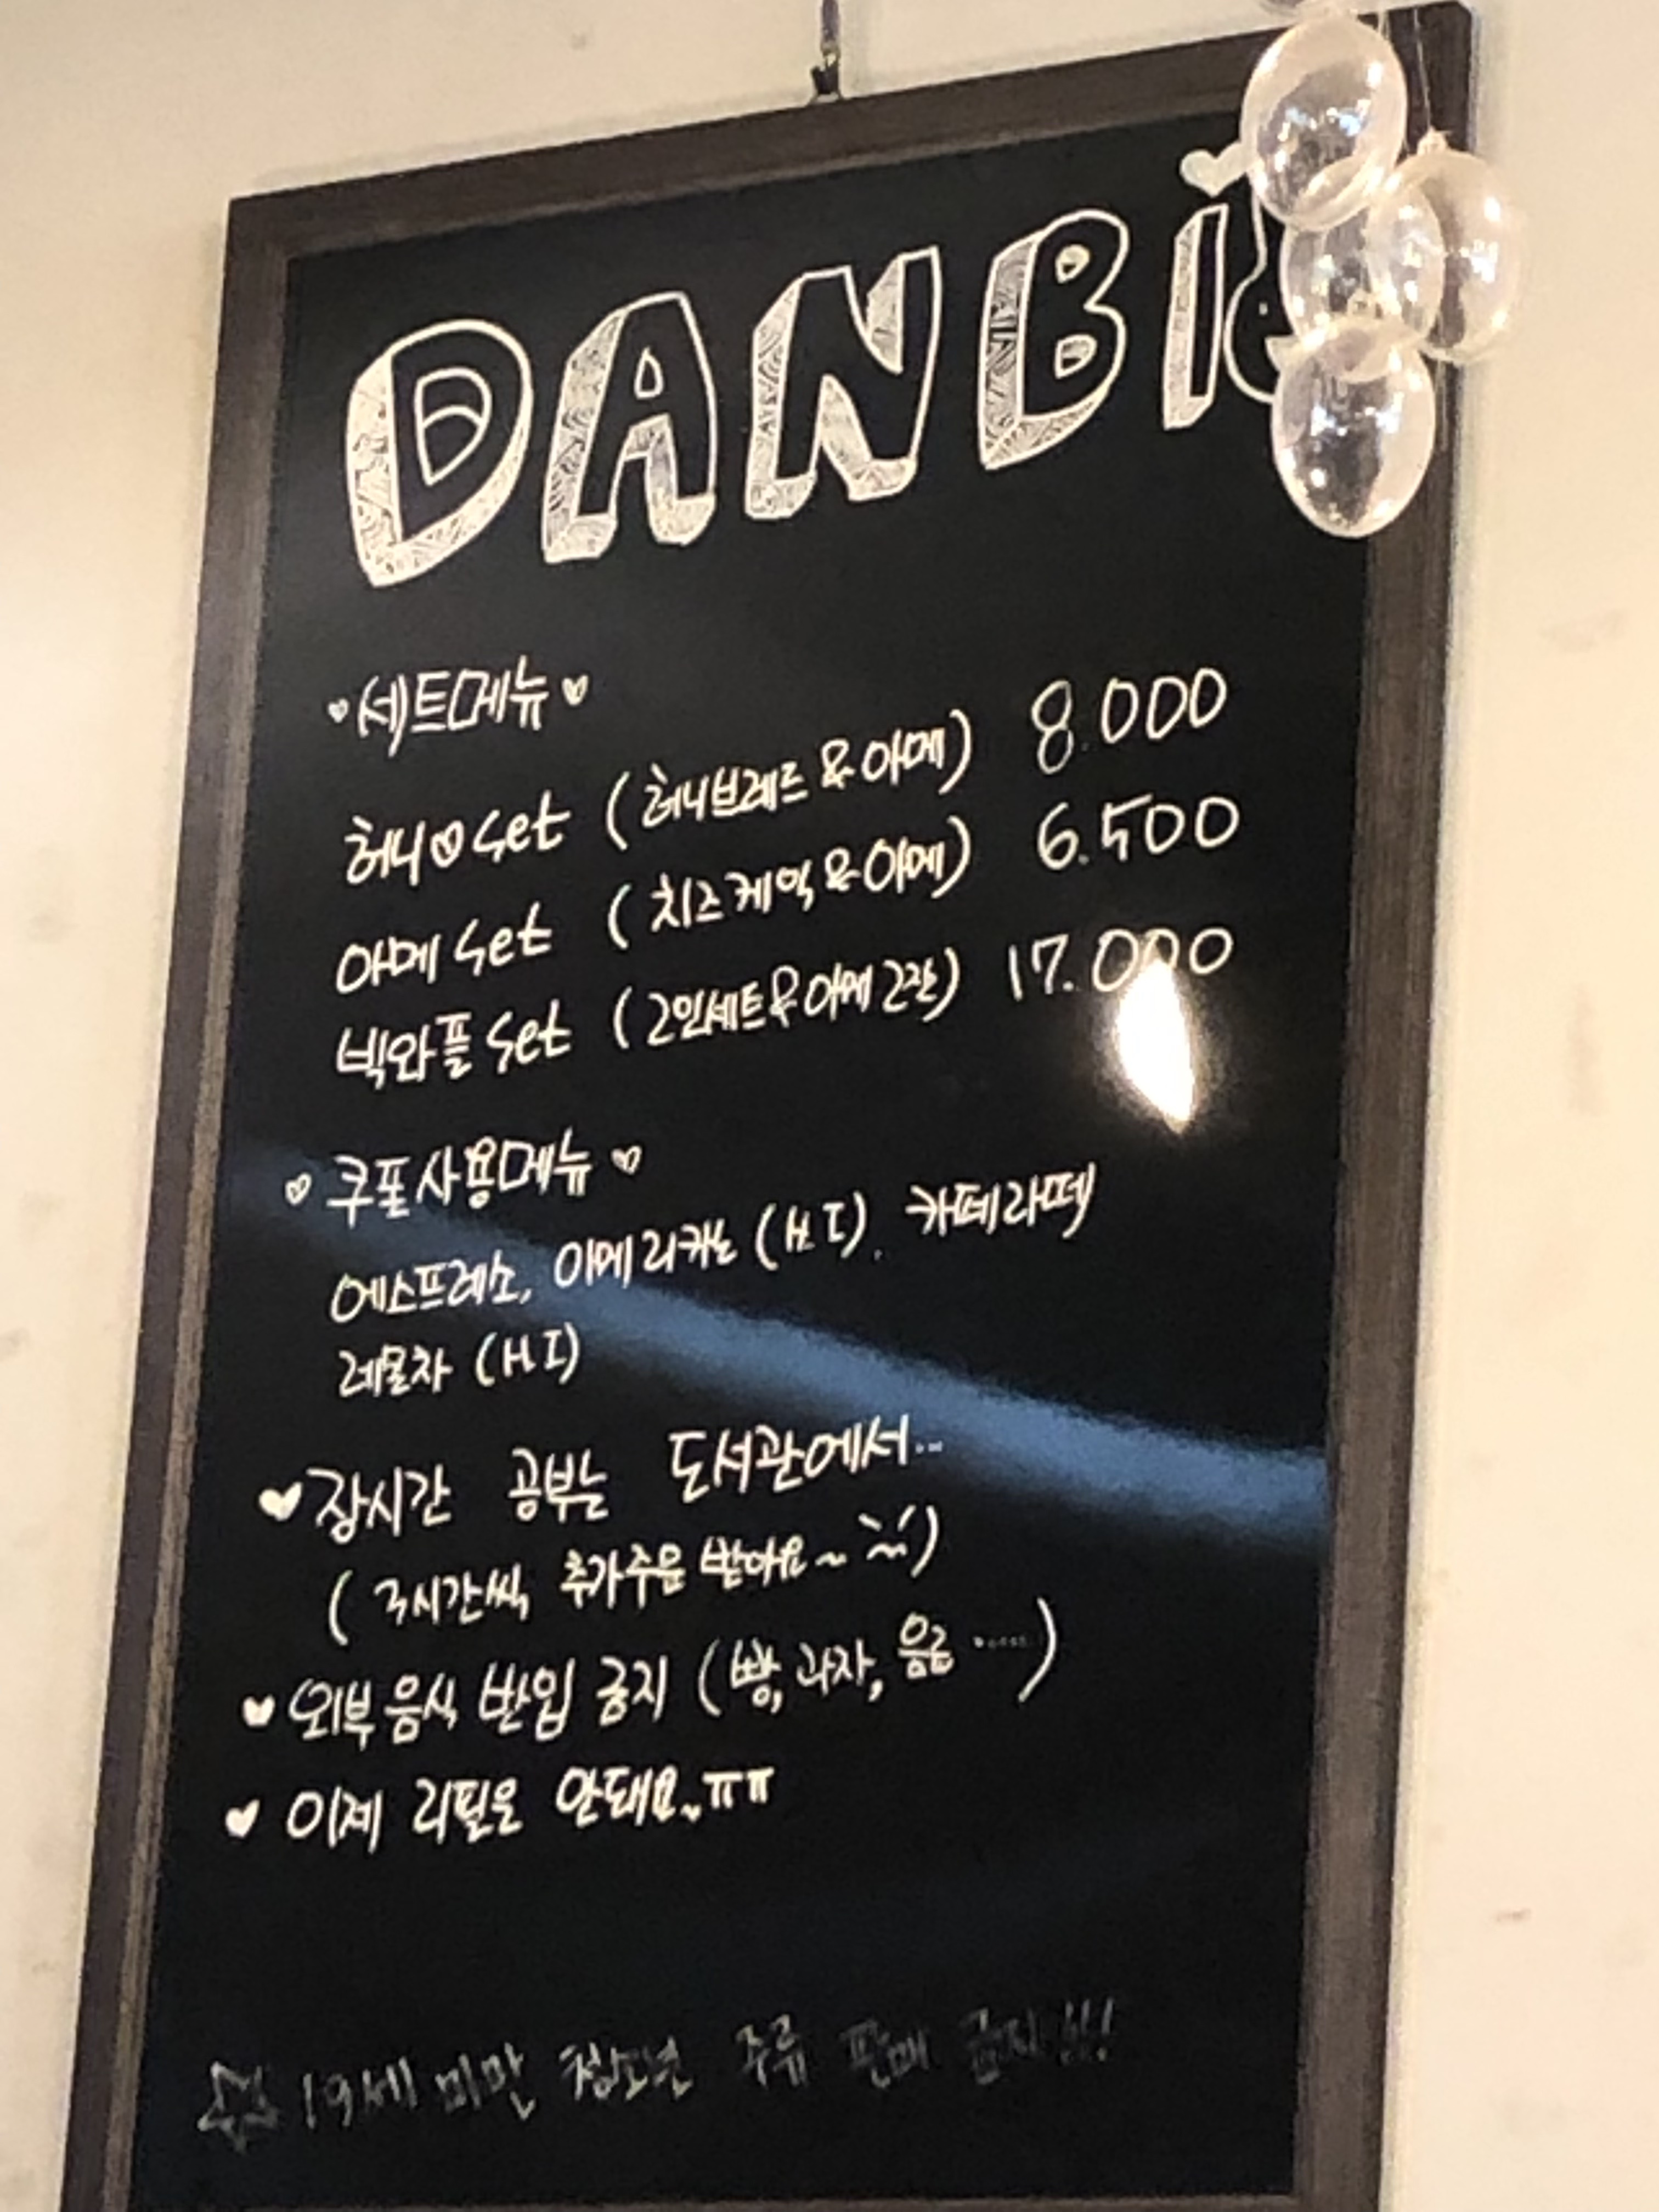 DANBI
세트메뉴
허니 set (허니브레드 & 아메) 8.000
아메 set (치즈케익 & 아메) 6.500
빅와플 set (2인세트 & 아메 2잔) 17.000
쿠폰사용메뉴
에스프레소, 아메리카노 (H. I), 카페라떼
레몬차 (H. I)
장시간 공부는 도서관에서...
(3시간씩 추가주문 받아요~ ^^)
외부음식 반입 금지 (빵, 과자, 음료 ......)
이제 리필은 안돼요.. ㅠㅠ
19세 미만 청소년 주류 판매 금지!!!